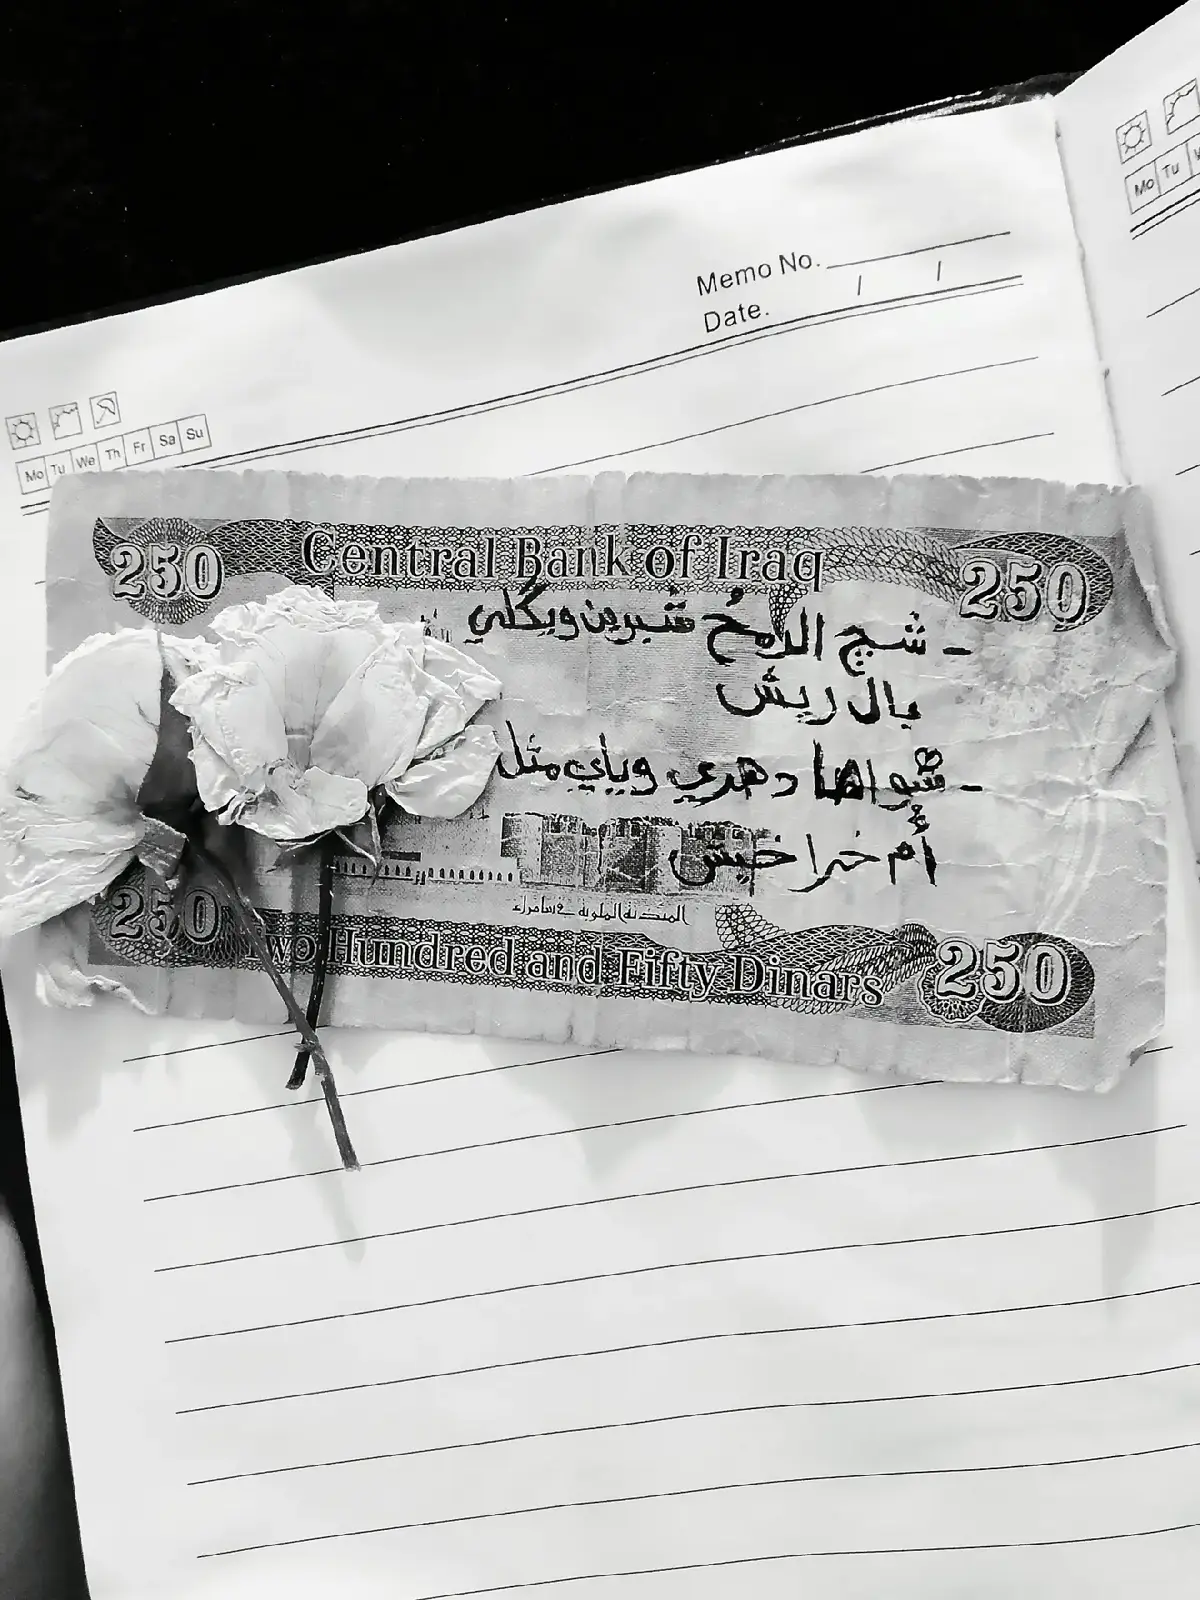 Memo No.
Date. / /
Mo Tu We Th Fr Sa Su
Mo Tu
250 Central Bank of Iraq 250
- شج الرمح فتبرين ويگلي
يال ريش
- شواها دهري وياي مثل
أم خرا خيش
المئذنة الملوية في سامراء
250 Two Hundred and Fifty Dinars 250